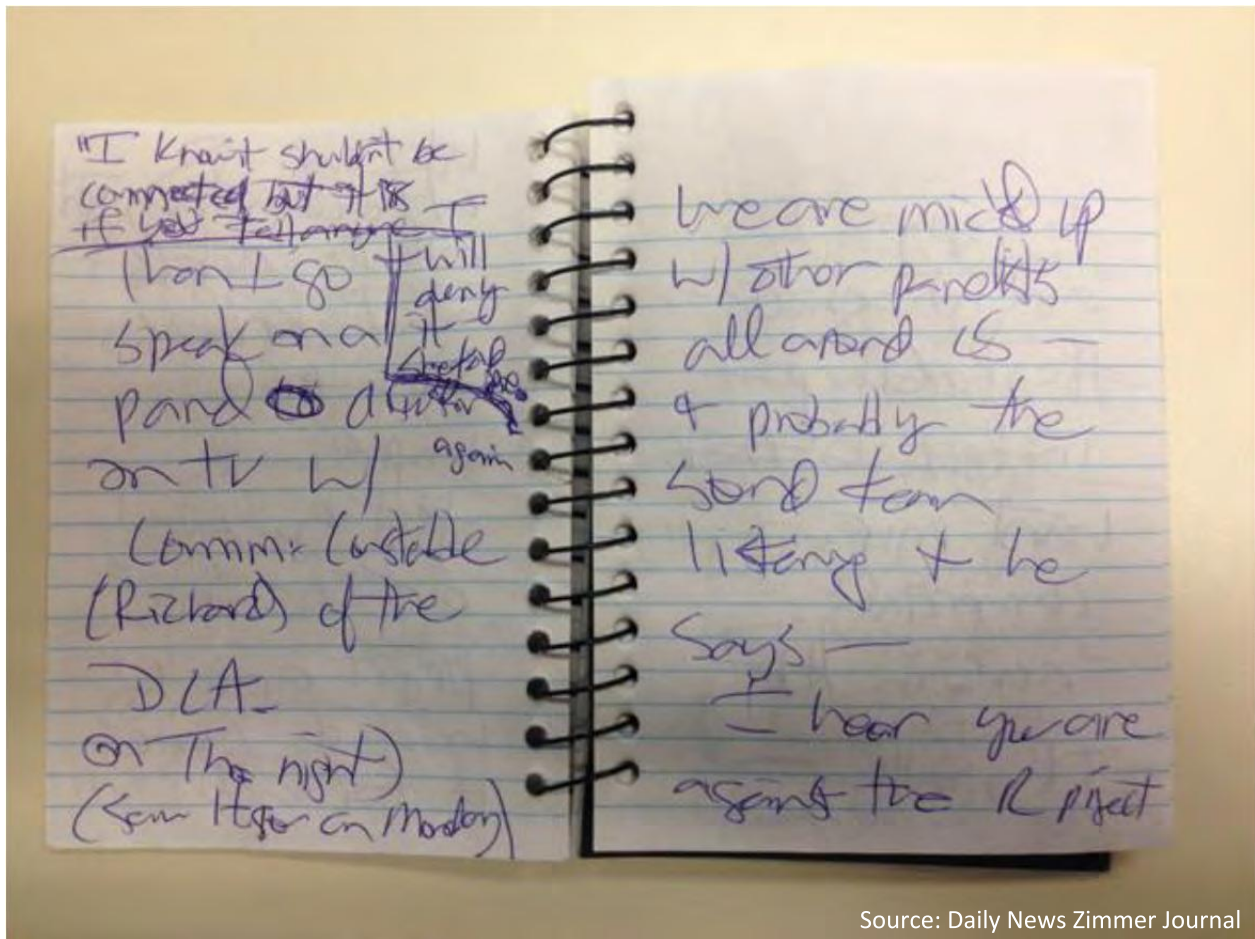 "I know it shouldn't be
connected but it is
if you tell anyone I
will
deny
it
Then I go
speak on a
panel
again
on TV w/
Comm. Constable
(Richard) of the
DCA
on Th. night)
on Monday)
we are mic'd up
w/ other panelists
all around us —
+ probably the
sound team
listening + he
says —
I hear you are
against the R project
Source: Daily News Zimmer Journal